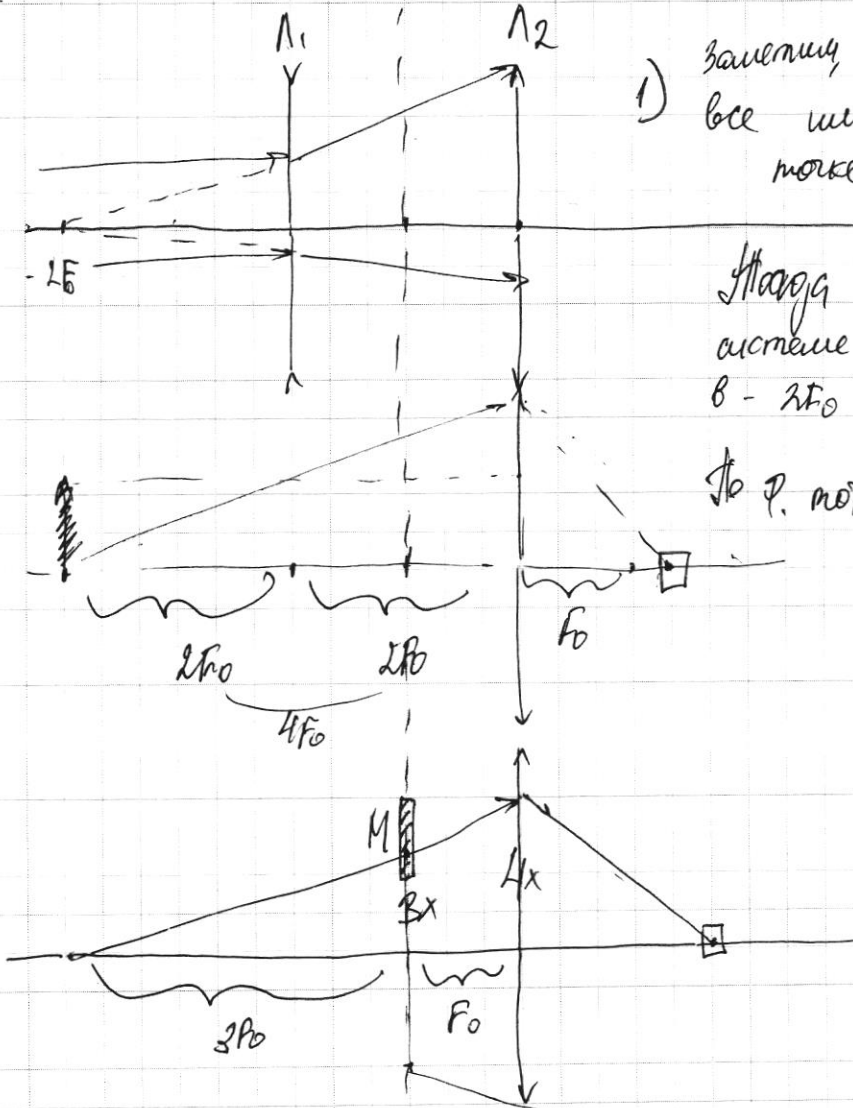 Л₁ Л2
1) Заметим,
все
точке
- 2F₀
Тогда
системе
в - 2F₀
2F₀ 2F₀ F₀
4F₀
По ф.
M
3x 4x
3F₀ F₀